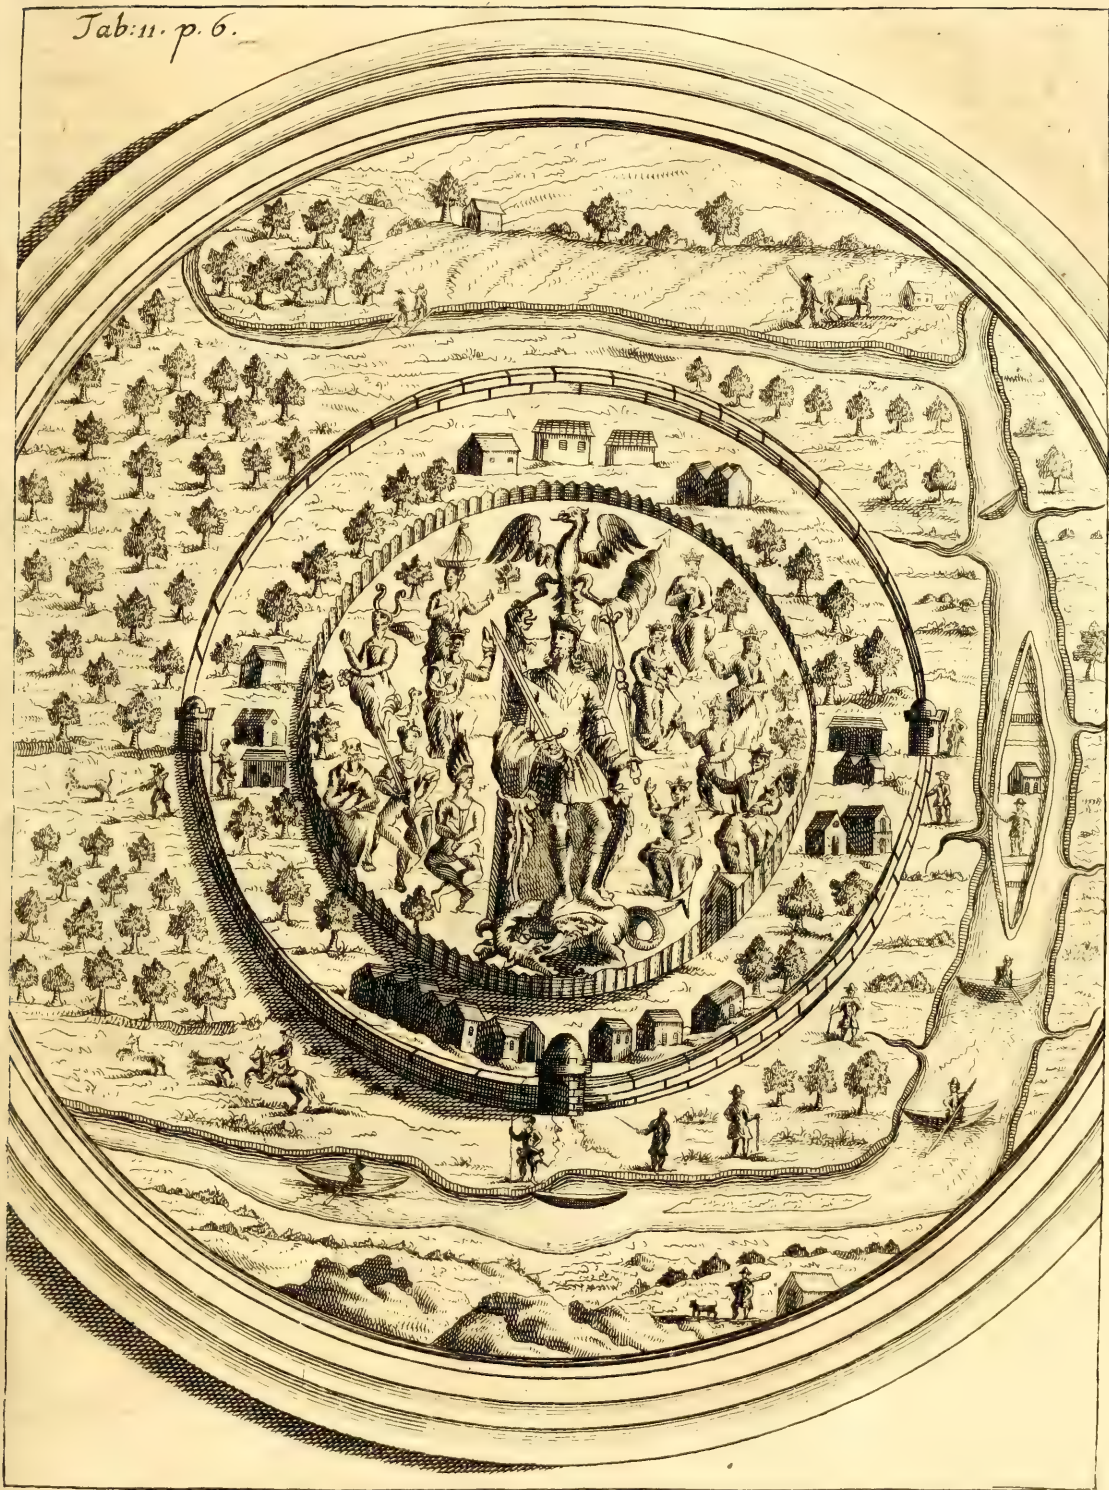 Tab: 11. p. 6.